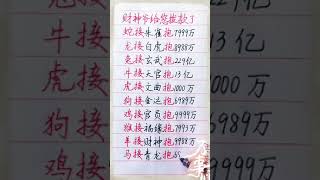 财神爷给您拨款了
蛇接朱雀抱7999万
龙接白虎抱8988万
兔接玄武抱229亿
牛接天官抱13亿
虎接文曲抱1000万
狗接金达抱6989万
鸡接宫员抱9999万
猴接福缘抱7993万
羊接财神抱9988万
马接青龙抱
牛接
虎接
狗接
鸡接
13亿
000万
6989万
9999万